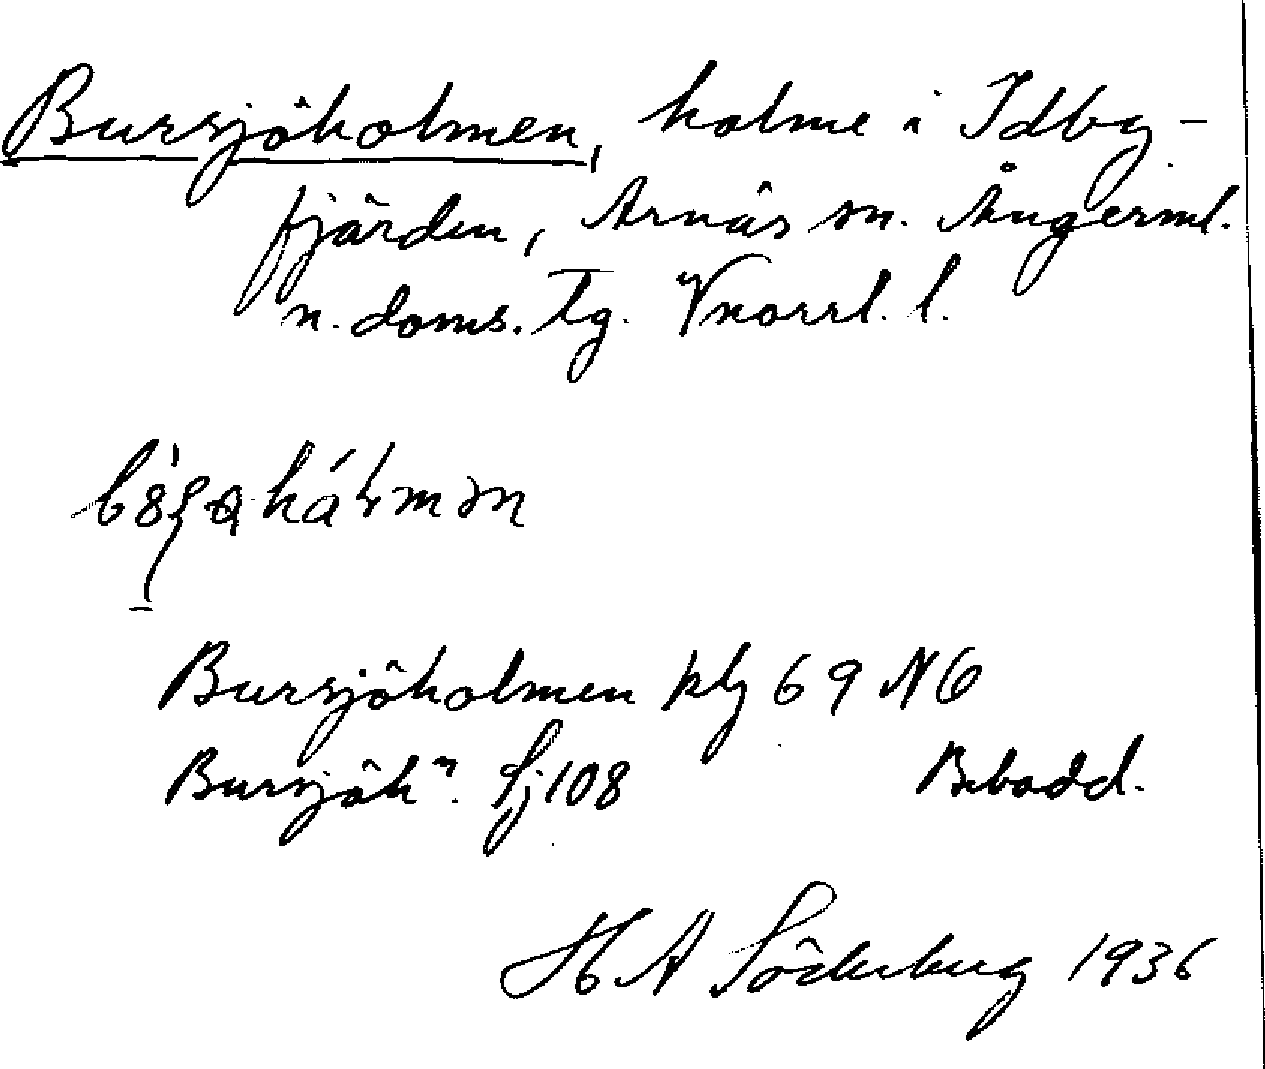 Bursjöholmen, holme i Idby-
fjärden, Arnäs sn. Ångerml.
n. doms. tg. Vnorrl. l.
Bursjöholmen plg 69 NO
Bursjöhn. Sj 108 Bebodd.
H A Söderberg 1936